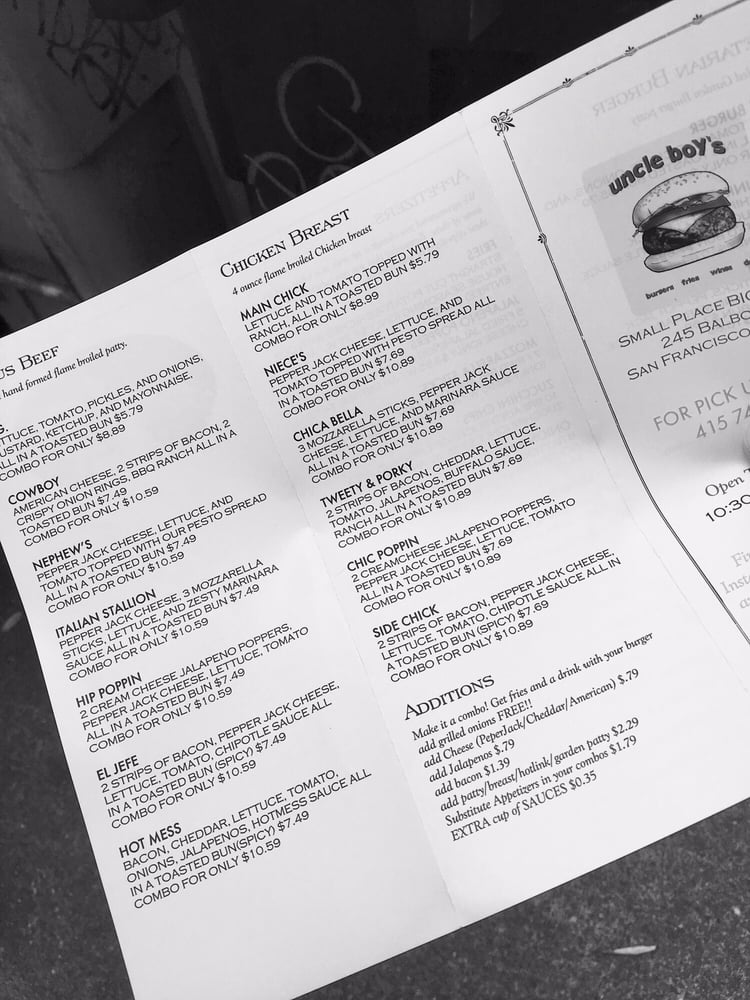 BEEF
hand formed flame broiled patty.
LETTUCE, TOMATO, PICKLES, AND ONIONS,
MUSTARD, KETCHUP, AND MAYONNAISE,
ALL IN A TOASTED BUN $5.79
COMBO FOR ONLY $8.89
COWBOY
AMERICAN CHEESE, 2 STRIPS OF BACON, 2
CRISPY ONION RINGS, BBQ RANCH ALL IN A
TOASTED BUN $7.49
COMBO FOR ONLY $10.59
NEPHEW'S
PEPPER JACK CHEESE, LETTUCE, AND
TOMATO TOPPED WITH OUR PESTO SPREAD
ALL IN A TOASTED BUN $7.49
COMBO FOR ONLY $10.59
ITALIAN STALLION
PEPPER JACK CHEESE, 3 MOZZARELLA
STICKS, LETTUCE, AND ZESTY MARINARA
SAUCE ALL IN A TOASTED BUN $7.49
COMBO FOR ONLY $10.59
HIP POPPIN
2 CREAM CHEESE JALAPENO POPPERS,
PEPPER JACK CHEESE, LETTUCE, TOMATO
ALL IN A TOASTED BUN $7.49
COMBO FOR ONLY $10.59
EL JEFE
2 STRIPS OF BACON, PEPPER JACK CHEESE,
LETTUCE, TOMATO, CHIPOTLE SAUCE ALL
IN A TOASTED BUN (SPICY) $7.49
COMBO FOR ONLY $10.59
HOT MESS
BACON, CHEDDAR, LETTUCE, TOMATO,
ONIONS, JALAPENOS, HOTMESS SAUCE ALL
IN A TOASTED BUN(SPICY) $7.49
COMBO FOR ONLY $10.59
CHICKEN BREAST
4 ounce flame broiled Chicken breast
MAIN CHICK
LETTUCE AND TOMATO TOPPED WITH
RANCH, ALL IN A TOASTED BUN $5.79
COMBO FOR ONLY $8.99
NIECE'S
PEPPER JACK CHEESE, LETTUCE, AND
TOMATO TOPPED WITH PESTO SPREAD ALL
IN A TOASTED BUN $7.69
COMBO FOR ONLY $10.89
CHICA BELLA
3 MOZZARELLA STICKS, PEPPER JACK
CHEESE, LETTUCE, AND MARINARA SAUCE
ALL IN A TOASTED BUN $7.69
COMBO FOR ONLY $10.89
TWEETY & PORKY
2 STRIPS OF BACON, CHEDDAR, LETTUCE,
TOMATO, JALAPENOS, BUFFALO SAUCE,
RANCH ALL IN A TOASTED BUN $7.69
COMBO FOR ONLY $10.89
CHIC POPPIN
2 CREAMCHEESE JALAPENO POPPERS,
PEPPER JACK CHEESE, LETTUCE, TOMATO
ALL IN A TOASTED BUN $7.69
COMBO FOR ONLY $10.89
SIDE CHICK
2 STRIPS OF BACON, PEPPER JACK CHEESE,
LETTUCE, TOMATO, CHIPOTLE SAUCE ALL IN
A TOASTED BUN (SPICY) $7.69
COMBO FOR ONLY $10.89
ADDITIONS
Make it a combo! Get fries and a drink with your burger
add grilled onions FREE!!
add Cheese (PeperJack/Cheddar/American) $.79
add Jalapenos $.79
add bacon $1.39
add patty/breast/hotlink/garden patty $2.29
Substitute Appetizers in your combos $1.79
EXTRA cup of SAUCES $0.35
uncle boy's
burgers fries wings
SMALL PLACE
245
SAN FRANCISCO
FOR PICK
415
Open
10:30